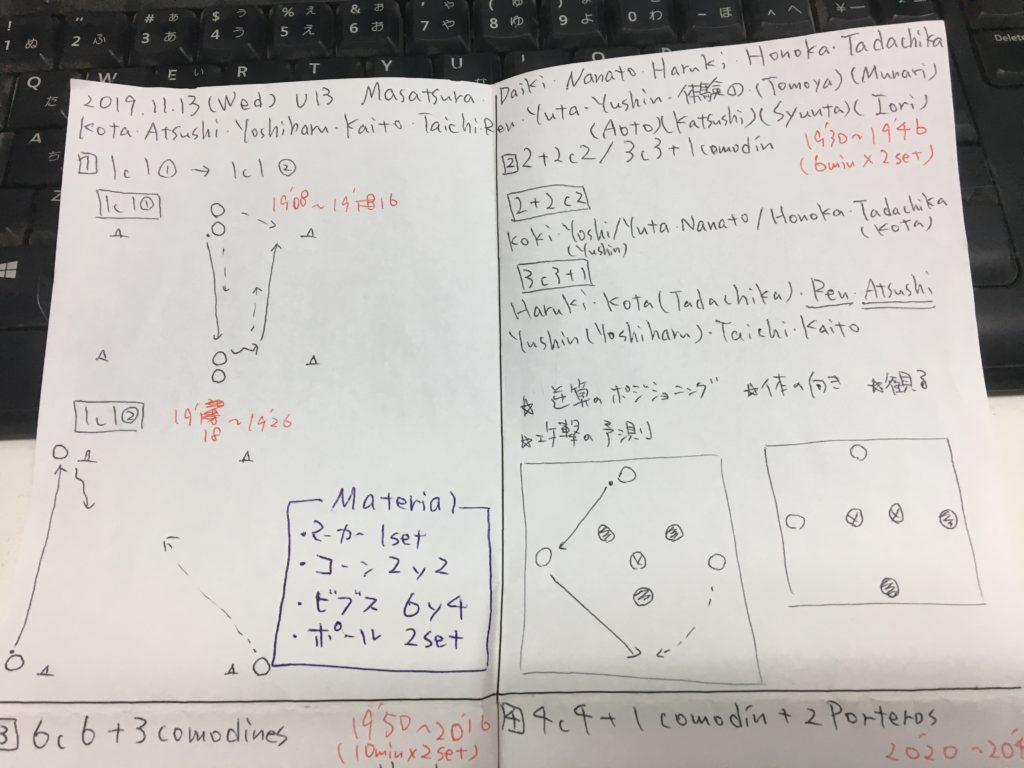 2019.11.13(Wed) U13 Masatsura・Daiki・Nanato・Haruki・Honoka・Tadachika
Kota・Atsushi・Yoshiharu・Kaito・Taichi・Ren・Yuta・Yushin・体験の(Tomoya)(Munari)
(Aoto)(Katsushi)(Syunta)(Iori)
1 1c1① → 1c1②
1c1①
19'08~19'16
1c1②
18~19'26
Material
・マーカー 1set
・コーン 2y2
・ビブス 6y4
・ボール 2set
2 2+2c2/3c3+1comodín
19'30~19'46
(6min×2set)
2+2c2
Koki・Yoshi/Yuta・Nanato/Honoka・Tadachika
(Yushin)
(Kota)
3c3+1
Haruki・Kota(Tadachika)・Ren・Atsushi
Yushin(Yoshiharu)・Taichi・Kaito
☆逆算のポジショニング ☆体の向き ☆観る
☆攻撃の予測
3 6c6+3comodines
19'50~20'16
(10min×2set)
4 4c4+1comodín+2Porteros
20'20~20'4
Q
W
E い
R
T
Y
U
Delete